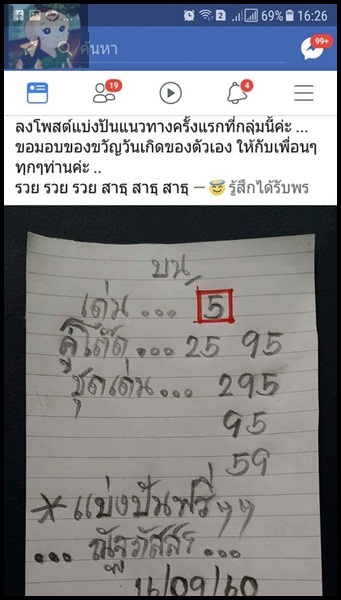 69% 16:26
ค้นหา
99+
19
4
ลงโพสต์แบ่งปันแนวทางครั้งแรกที่กลุ่มนี้ค่ะ ...
ขอมอบของขวัญวันเกิดของตัวเอง ให้กับเพื่อนๆ
ทุกๆท่านค่ะ ..
รวย รวย รวย สาธุ สาธุ สาธุ — 😇 รู้สึกได้รับพร
บน
เด่น ... 5
คู่โต๊ด ... 25 95
ชุดเด่น ... 295
95
59
*แบ่งปันฟรีๆๆ
... ...
16/09/60